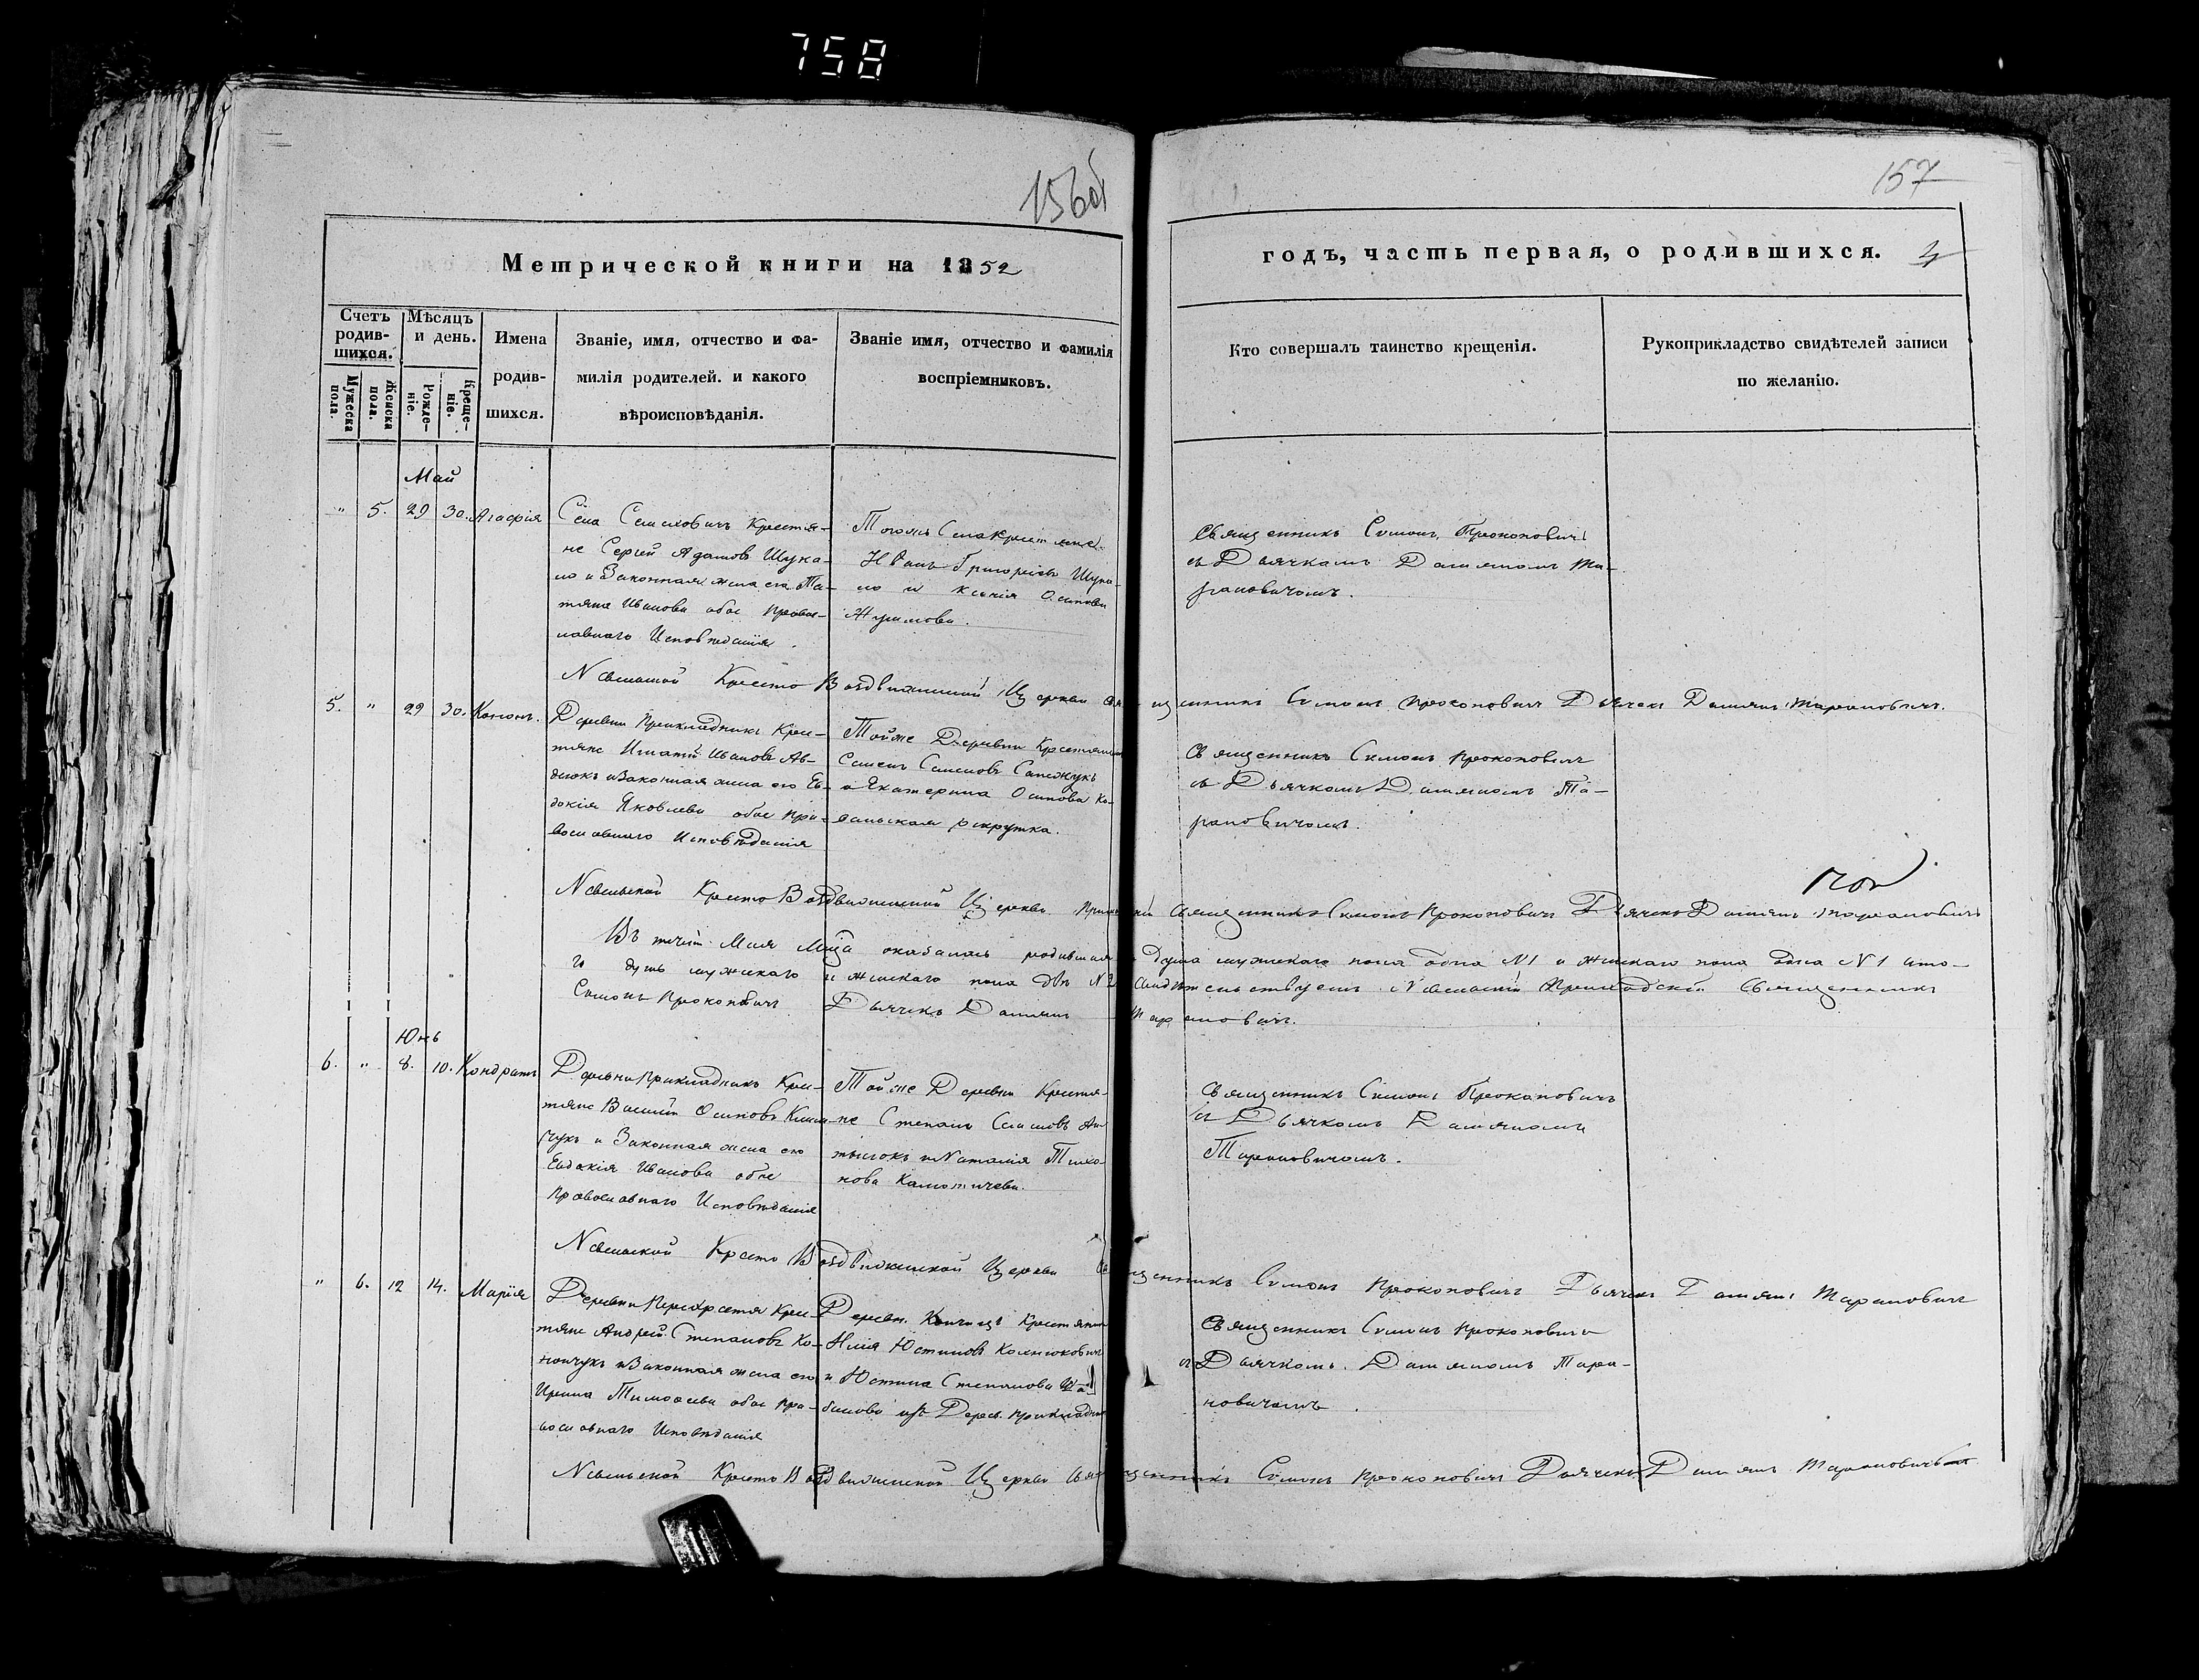 758
156об
157
Метрической книги на 1852
годъ, часть первая, о родившихся. 4
Счетъ родив-шихся.
Мужеска пола.
Женска пола.
Мѣсяцъ и день.
Рожде-ніе.
Креще-ніе.
Имена родив-шихся.
Званіе, имя, отчество и фа-
милія родителей. и какого
вѣроисповѣданія.
Званіе имя, отчество и фамилія
воспріемниковъ.
Кто совершалъ таинство крещенія.
Рукоприкладство свидѣтелей записи
по желанію.
Май
" 5. 29 30. Агафія
Села Селиховичъ Крестья-
не Сергій Адамовъ Шука-
ло и Законная жена его Та-
тяна Иванова обое Правос-
лавнаго Исповѣданія.
Тогожъ Села Крестьяне
Иванъ Григоріевъ Шука-
ло и Ксенія Осипова
Священникъ Симонъ Прокоповичъ
съ Дьячкомъ Даміяномъ Та-
рановичомъ.
Кресто Воздвиженской Церкви Священникъ Симонъ Прокоповичъ Дьячекъ Даміянъ Тарановичъ.
5. " 29 30. Конон.
Деревни Прикладникъ Крес-
тяне Игнатій Ивановъ Ав-
деюкъ и Законная жена его Ев-
докія Яковлева обое Пра-
вославнаго Исповѣданія
Тойже Деревни Крестянинъ
Семенъ Семеновъ
и Екатерина Осипова
рекрутка.
Священникъ Симонъ Прокоповичъ
съ Дьячкомъ Даміяномъ Та-
рановичомъ.
Кресто Воздвиженской Церкви Священникъ Симонъ Прокоповичъ Дьячекъ Даміянъ Тарановичъ
Въ Мая оказалось родившихся Душа мужескаго пола одна N1 и женскаго пола одна N1 ито-
го душъ мужскаго и женскаго пола двѣ N2 Свидѣтельствуетъ Священникъ
Симонъ Прокоповичъ Дьячекъ Даміянъ Тарановичъ.
Юнь
6. " 8. 10. Кондратъ
Деревни Прикладникъ Крес-
тяне Василій Осиповъ
и Законная жена его
Евдокія Иванова обое
Православнаго Исповѣданія
Тойже Деревни Крестья-
не Степанъ
и Наталія Тихо-
нова
Священникъ Симонъ Прокоповичъ
съ Дьячкомъ Даміяномъ
Тарановичомъ.
Кресто Воздвиженской Церкви Священникъ Симонъ Прокоповичъ Дьячекъ Даміянъ Тарановичъ
" 6. 12 14. Марія
Деревни Крес-
тяне Андрей Степановъ Ко-
нончукъ и Законная жена его
Ирина Тимофеева обое Пра-
вославнаго Исповѣданія
Деревн. Крестянинъ
Илія Юстиновъ
и Юстина Степанова
изъ Дерев. Прикладникъ
Священникъ Симонъ Прокоповичъ
съ Дьячкомъ Даміяномъ Тара-
новичомъ.
Кресто Воздвиженской Церкви Священникъ Симонъ Прокоповичъ Дьячекъ Даміянъ Тарановичъ